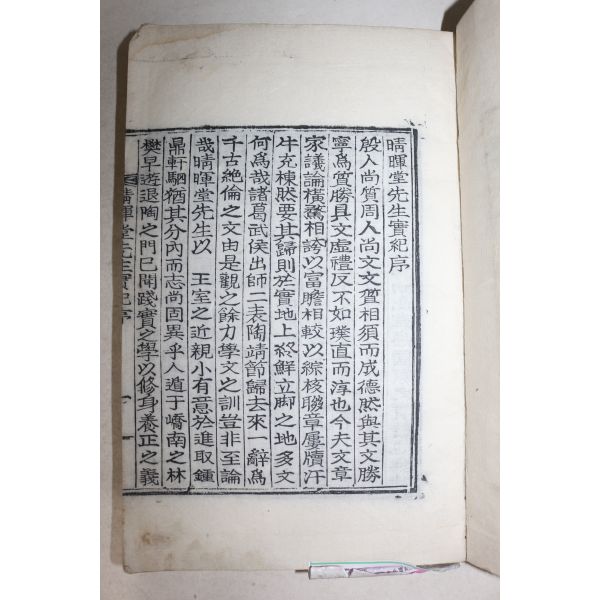 晴暉堂先生實紀序
殷人尚質周人尚文文質相須而成德然與其文勝
寧爲質勝具文虛禮反不如璞直而淳也今夫文章
家議論橫騖相誇以富贍相較以綜核聯章屢牘汗
牛充棟然要其歸則於實地上終鮮立脚之地多文
何爲哉諸葛武侯出師二表陶靖節歸去來一辭爲
千古絶倫之文由是觀之餘力學文之訓豈非至論
哉晴暉堂先生以 王室之近親小有意於進取鍾
鼎軒駟猶其分內而志尚固異乎人遁于嶠南之林
樊早遊退陶之門已聞踐實之學以修身養正之義
晴暉堂先生實紀序 一